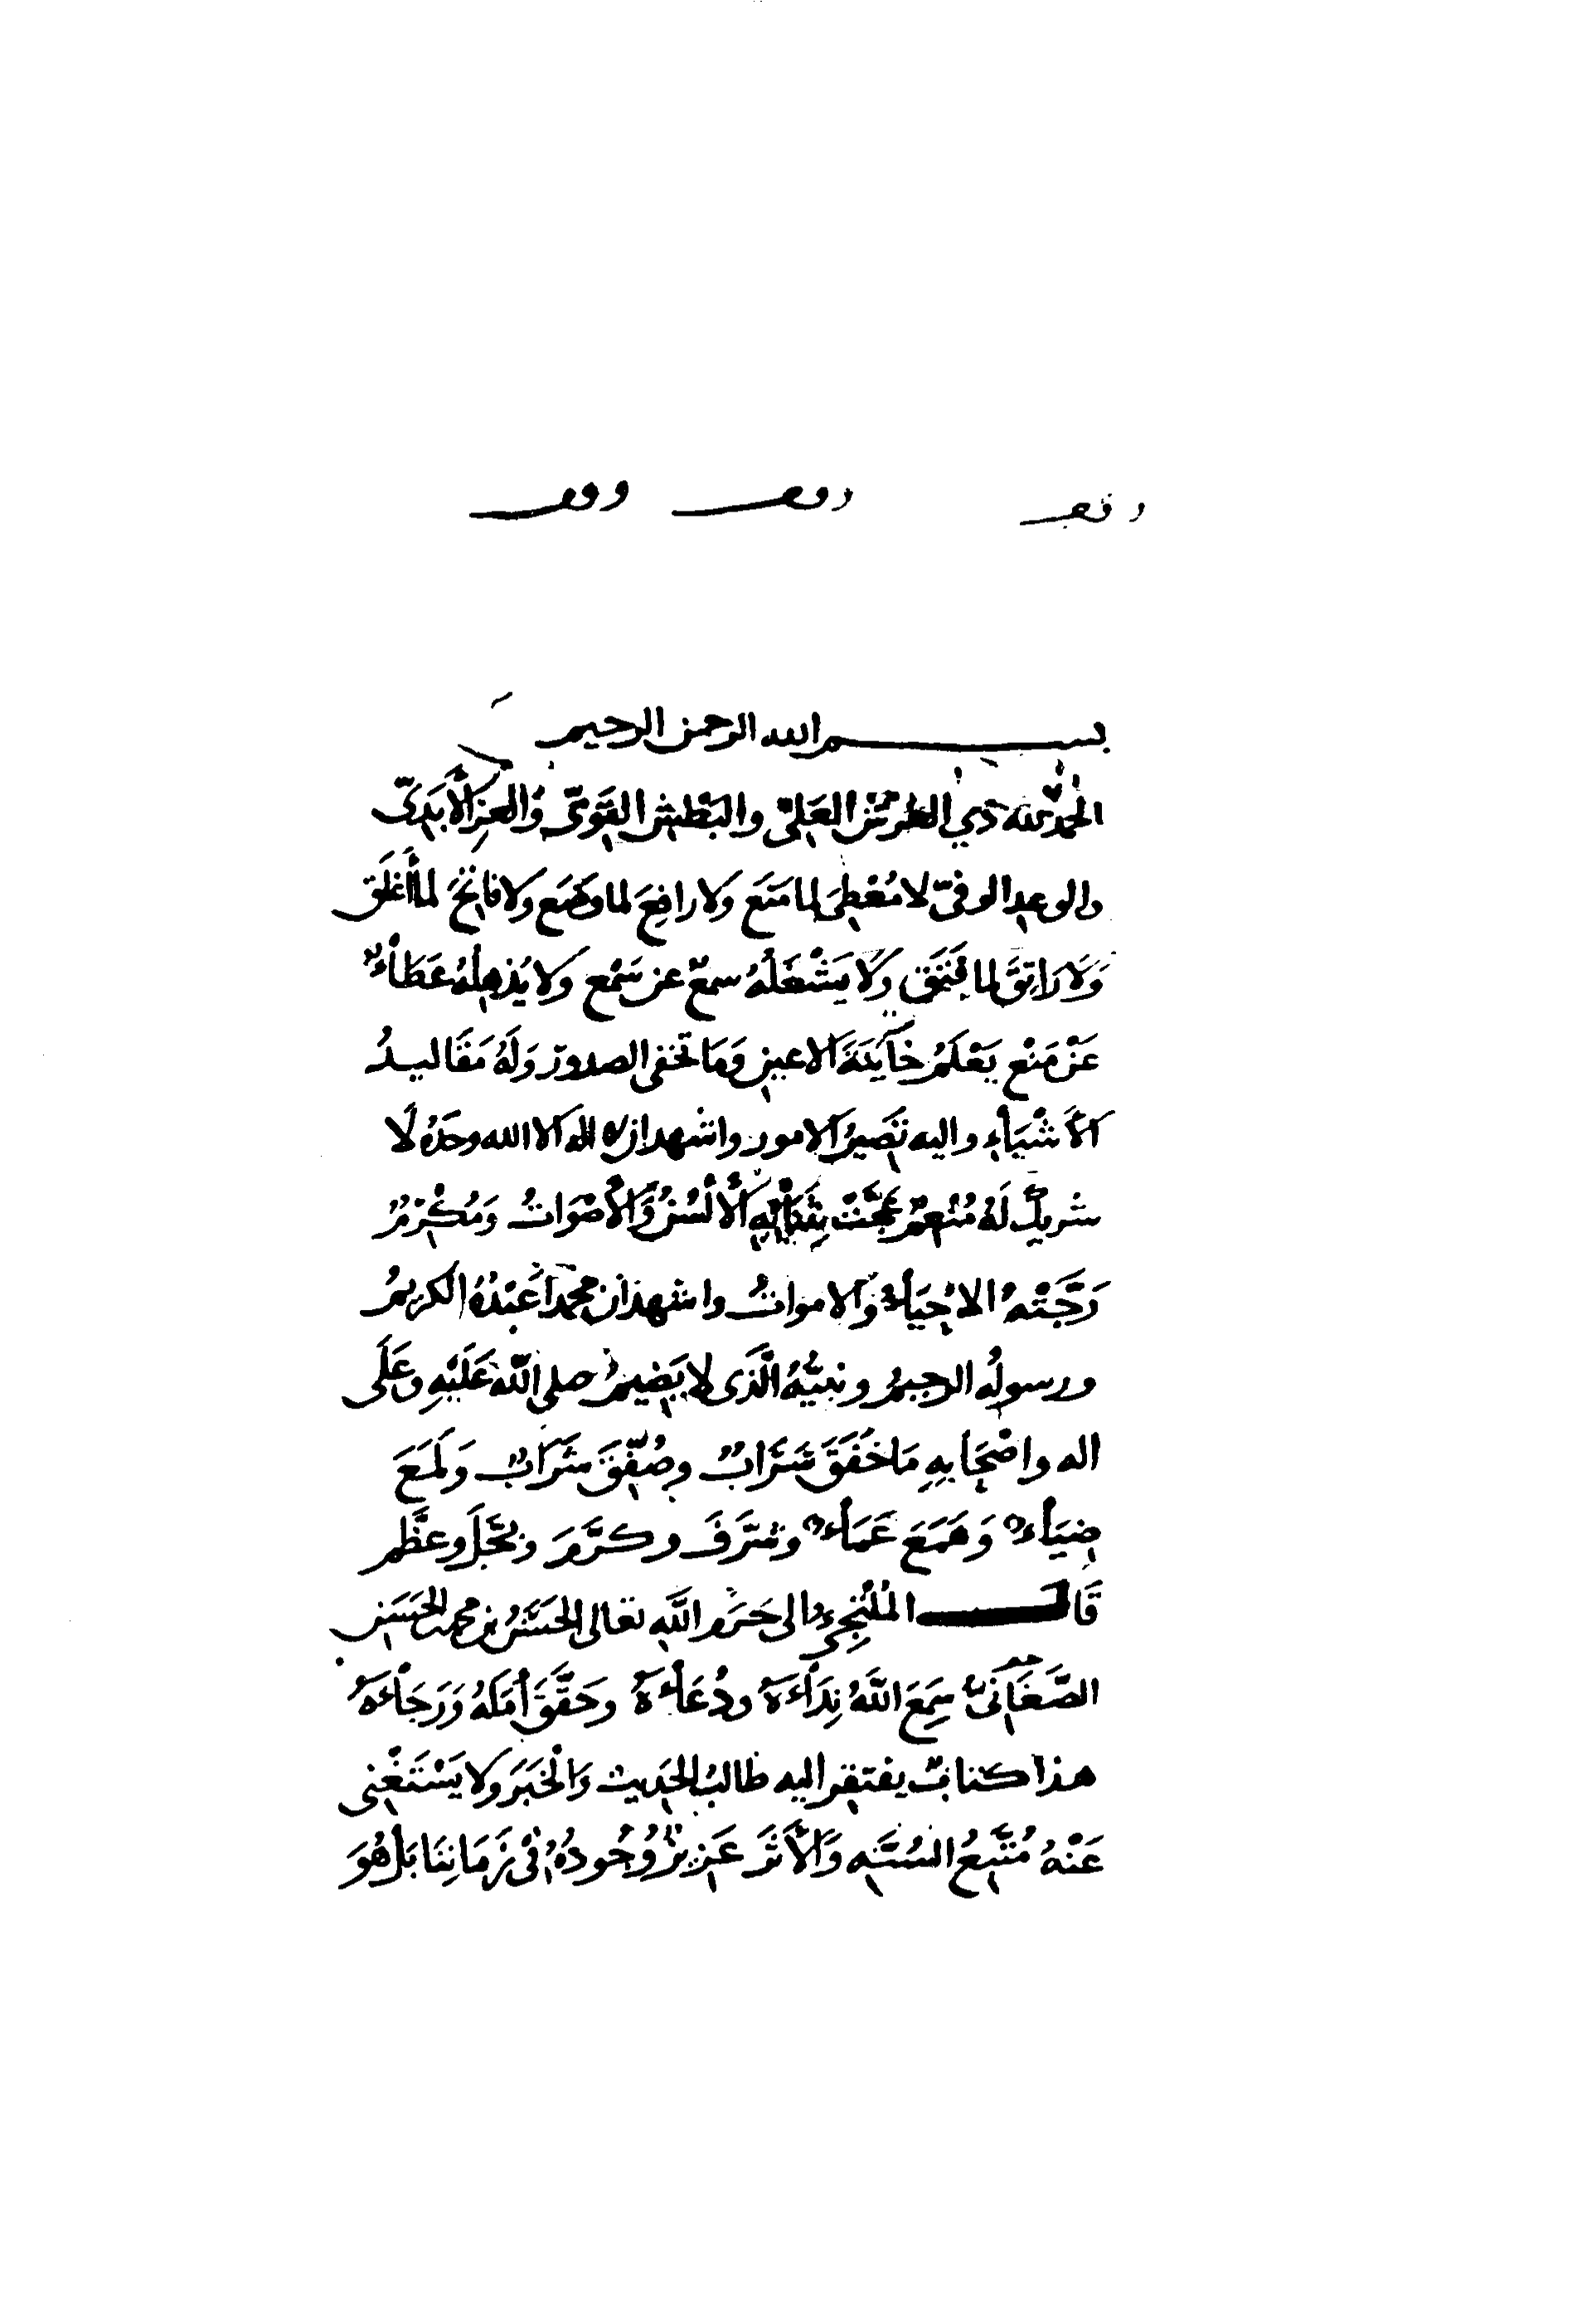 وقف وقف وقف
بسم الله الرحمن الرحيم
الحمدُ لله ذي العَلِيّ والبَطْشِ القَوِيّ وَالعِزِ الأَبَدِيّ
والوعدِ الوفيّ لا مُعْطِيَ لما مَنَعَ وَلا رافِعَ لما وَضَعَ وَلا فاتِحَ لما أَغلَق
وَلَا رَاتِقَ لما فَتَقَ وَلَا يَشْغَلُهُ سمعٌ عن سَمْعٍ وَلا يُذهِلُهُ عَطَاءٌ
عَنْ مَنْعٍ يَعْلَمُ خَآئِنَةَ الاعينِ وَمَا تخفى الصدورُ وَلَهُ مَقَاليدُ
الأَشْيَاءِ واليه تَصِيرُ الامور واشهد ان لا اله الا الله وحدَهُ لَا
شريكَ لَهُ مُنْعِمٌ عَجَّتْ الأَلْسُنُ وَالْأَصْوَاتُ وَمُكْرِمٌ
رَجَّتْهُ الاحْيَاءُ وَالاموَاتُ واشهدُ ان محمداً عَبْدُهُ الكريمُ
ورسولُه الرحيمُ ونبيُّهُ الَّذى لا يَضِيمُ صلى اللّهُ عَلَيْهِ وعَلَى
اله واصْحَابِهِ مَا خَفَقَ سَرَابٌ وصُفِّقَ شَرَابٌ وَلَمَعَ
ضِيَاءٌ وَهَمَعَ عَمَاءٌ وشَرَّفَ وكرَّمَ وبَجَّلَ وعظَّم
قَالَ المُلْتَجِئُ الى حَرَمِ اللَّهِ تعالى الحَسَنُ بن محمد الحَسَنِ
الصَّغَانِىُّ سَمِعَ اللَّهُ نِدَاءَهُ ودُعَاءَهُ وحَقَّقَ أَمَلَهُ وَرَجَاءَهُ
هذا كتابٌ يفتقِر اليه طالبُ الحَدِيثِ وَالْخَبَرِ وَلا يَسْتَغْنِى
عَنْهُ مُتَّبِعُ السُنَّهِ وَالأَثَرِ عَزِيزٌ وُجُودُهُ فى زَمَانِنَا بَلْ هُوَ